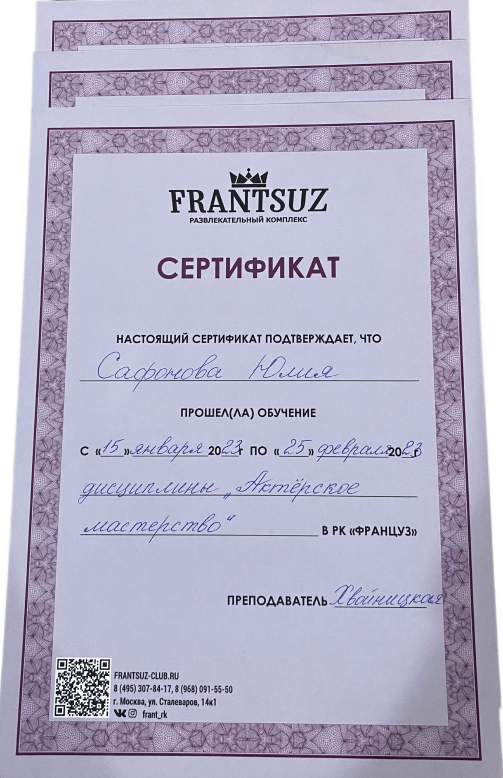 FRANTSUZ
РАЗВЛЕКАТЕЛЬНЫЙ КОМПЛЕКС
СЕРТИФИКАТ
НАСТОЯЩИЙ СЕРТИФИКАТ ПОДТВЕРЖДАЕТ, ЧТО
Сафонова Юлия
ПРОШЕЛ(ЛА) ОБУЧЕНИЕ
С «15» января 2023г ПО «25» февраля 2023г
дисциплины „Актёрское
мастерство" В РК «ФРАНЦУЗ»
ПРЕПОДАВАТЕЛЬ Хвойницкая
FRANTSUZ-CLUB.RU
8 (495) 307-84-17, 8 (968) 091-55-50
г. Москва, ул. Сталеваров, 14к1
frant_rk